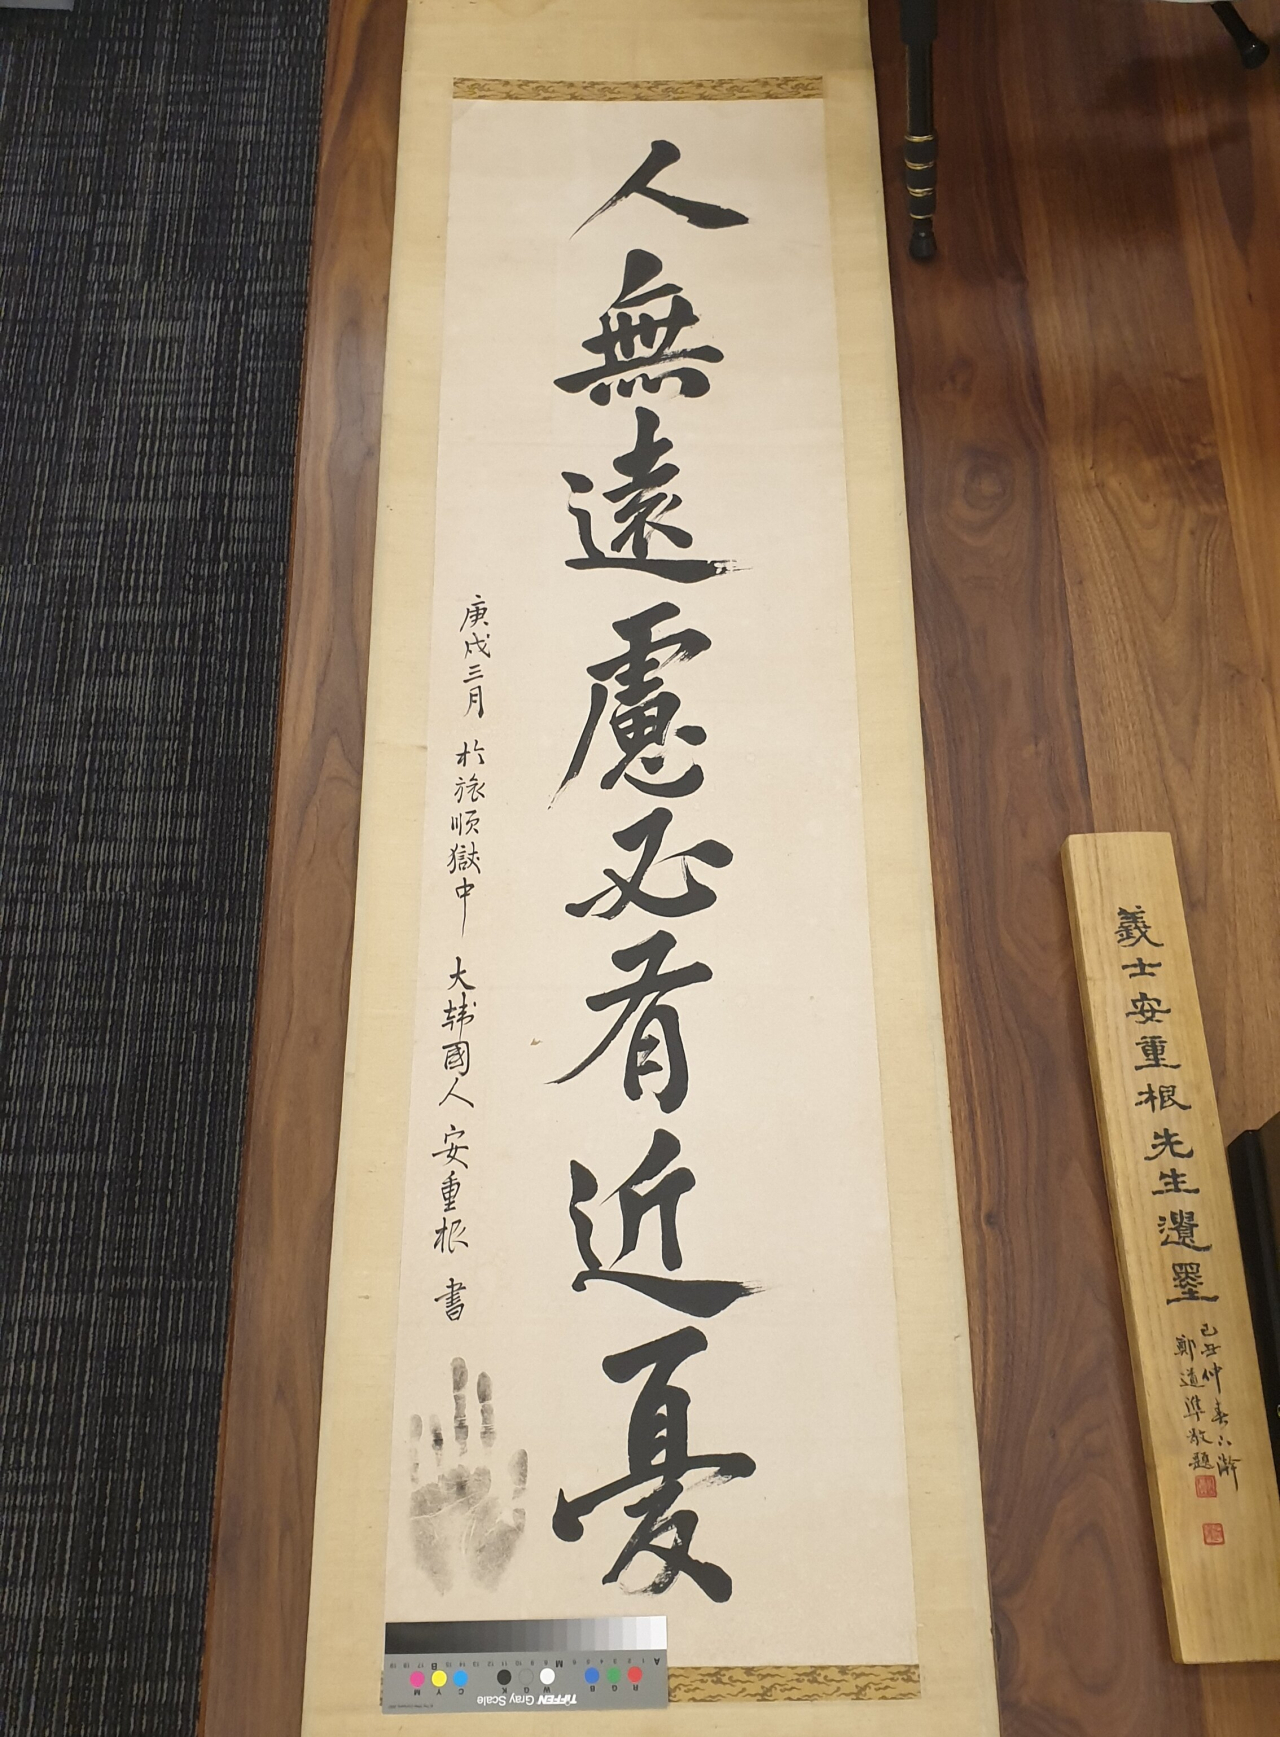 人無遠慮必有近憂
庚戌三月 於旅順獄中 大韩國人 安重根 書
義士安重根先生遺墨
己丑仲春
鄭道準敬題
TIFFEN Gray Scale
R G B W G K C Y M
A M B